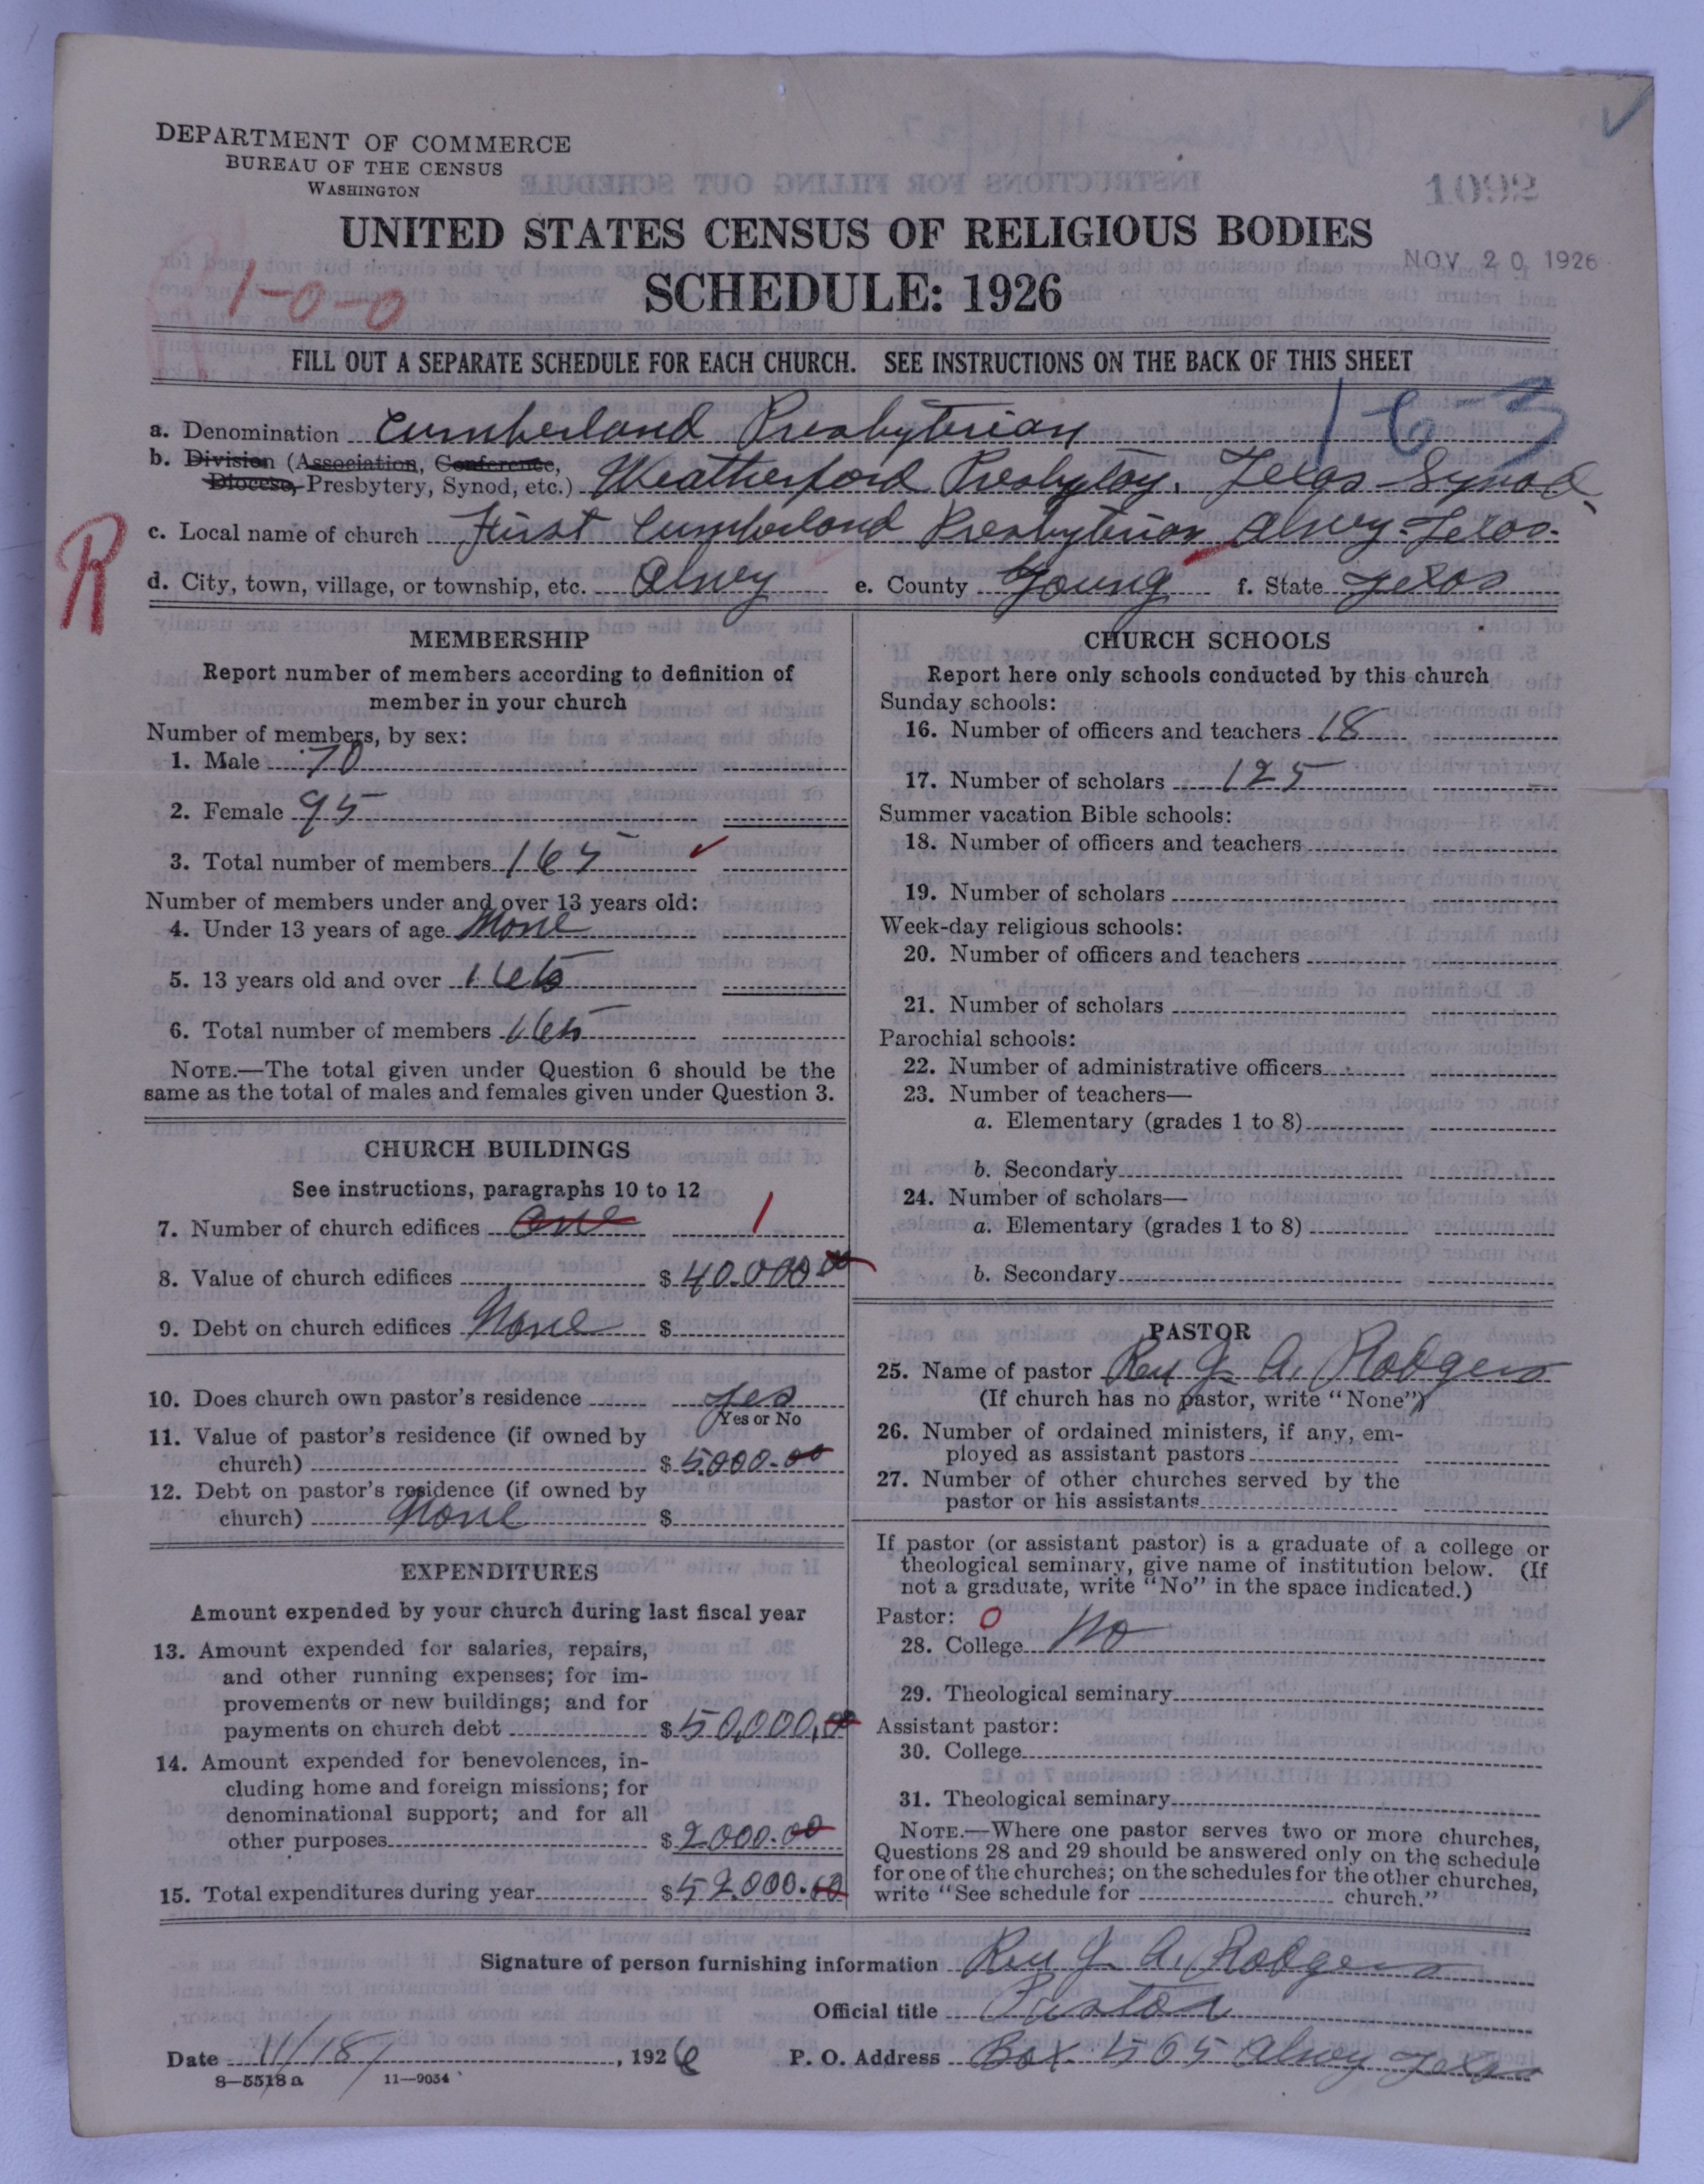 DEPARTMENT OF COMMERCE
BUREAU OF THE CENSUS
WASHINGTON
1092
UNITED STATES CENSUS OF RELIGIOUS BODIES
NOV 20 1926
SCHEDULE: 1926
1-0-0
FILL OUT A SEPARATE SCHEDULE FOR EACH CHURCH. SEE INSTRUCTIONS ON THE BACK OF THIS SHEET
16-3
a. Denomination Cumberland Presbyterian
b. Division (Association, Conference,
Diocese, Presbytery, Synod, etc.) Weatherford Presbytery. Texas Synod
R
c. Local name of church First Cumberland Presbyterian Olney-Texas.
d. City, town, village, or township, etc. Olney e. County Young f. State Texas
MEMBERSHIP
Report number of members according to definition of
member in your church
Number of members, by sex:
1. Male 70
2. Female 95
3. Total number of members 165
Number of members under and over 13 years old:
4. Under 13 years of age None
5. 13 years old and over 165
6. Total number of members 165
NOTE.—The total given under Question 6 should be the
same as the total of males and females given under Question 3.
CHURCH BUILDINGS
See instructions, paragraphs 10 to 12
7. Number of church edifices One 1
8. Value of church edifices $ 40.000 00
9. Debt on church edifices None $
10. Does church own pastor's residence Yes
Yes or No
11. Value of pastor's residence (if owned by
church) $ 5.000.00
12. Debt on pastor's residence (if owned by
church) None $
EXPENDITURES
Amount expended by your church during last fiscal year
13. Amount expended for salaries, repairs,
and other running expenses; for im-
provements or new buildings; and for
payments on church debt $ 50,000.00
14. Amount expended for benevolences, in-
cluding home and foreign missions; for
denominational support; and for all
other purposes $ 2.000.00
15. Total expenditures during year $ 52.000.00
CHURCH SCHOOLS
Report here only schools conducted by this church
Sunday schools:
16. Number of officers and teachers 18
17. Number of scholars 125
Summer vacation Bible schools:
18. Number of officers and teachers
19. Number of scholars
Week-day religious schools:
20. Number of officers and teachers
21. Number of scholars
Parochial schools:
22. Number of administrative officers
23. Number of teachers—
a. Elementary (grades 1 to 8)
b. Secondary
24. Number of scholars—
a. Elementary (grades 1 to 8)
b. Secondary
PASTOR
25. Name of pastor Rev J. A. Rodgers
(If church has no pastor, write "None")
26. Number of ordained ministers, if any, em-
ployed as assistant pastors
27. Number of other churches served by the
pastor or his assistants
If pastor (or assistant pastor) is a graduate of a college or
theological seminary, give name of institution below. (If
not a graduate, write "No" in the space indicated.)
Pastor: 0
28. College No
29. Theological seminary
Assistant pastor:
30. College
31. Theological seminary
NOTE.—Where one pastor serves two or more churches,
Questions 28 and 29 should be answered only on the schedule
for one of the churches; on the schedules for the other churches,
write "See schedule for church."
Signature of person furnishing information Rev J. A. Rodgers
Official title Pastor
Date 11/18/, 1926 P. O. Address Box 565 Olney Texas
8—5518a 11—9054